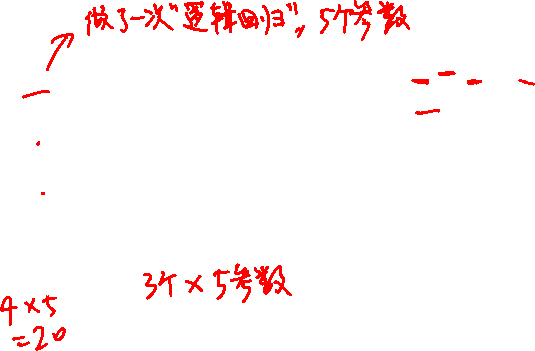 做了一次"逻辑回归", 5个参数
3个×5参数
4×5
=20